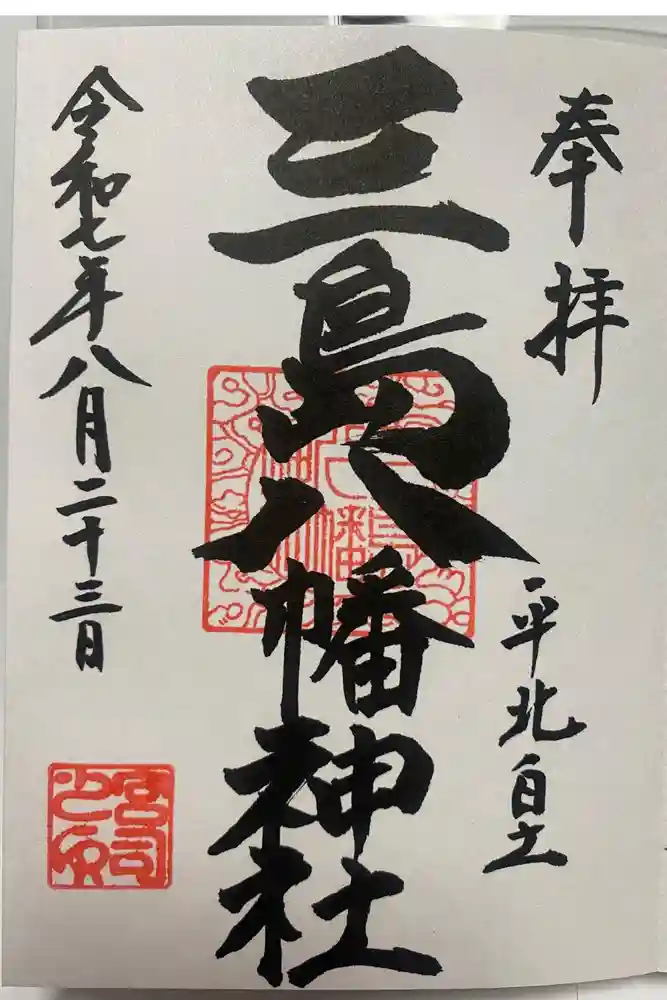 奉拝
平北白土
三島八幡神社
令和七年八月二十三日
宮司
之印